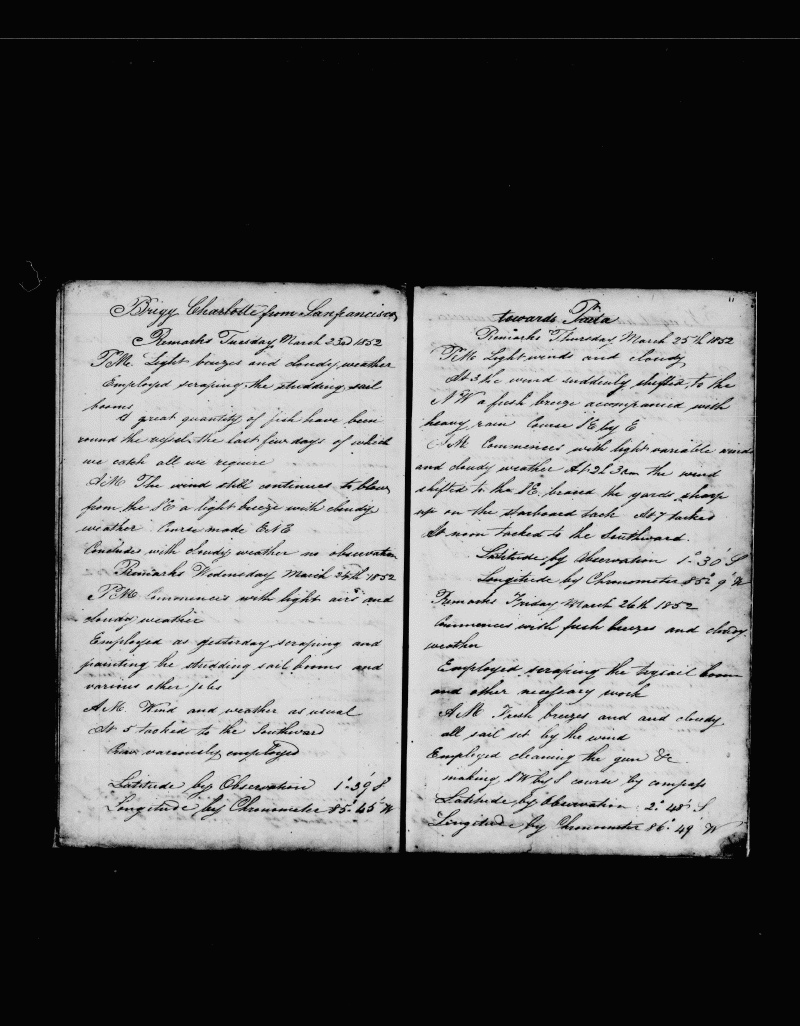 Brigg Charlotte from Sanfrancisco
Remarks Tuesday March 23rd 1852
P.M. Light breezes and cloudy weather
Employed scraping the studding sail
booms
A great quantity of fish have been
round the vessel the last few days of which
we catch all we require
A.M The wind still continues to blow
from the SE a light breeze with cloudy
weather Course made ENE
Concludes with cloudy weather no observation
Remarks Wednesday March 24th 1852
P.M. Commences with light airs and
cloudy weather
Employed as yesterday scraping and
painting the studding sail booms and
various other jobs
A.M. Wind and weather as usual
At 5 tacked to the Southward
Crew variously employed
Latitude by Observation 1° 39' S
Longitude by Chronometer 85° 45' W
towards Paita
11
Remarks Thursday March 25th 1852
P.M Light winds and cloudy
At 3 the wind suddenly shifted to the
NW a fresh breeze accompanied with
heavy rain Course SE by E
A.M. Commences with light variable winds
and cloudy weather At 2h 30m the wind
shifted to the SE braced the yards sharp
up on the starboard tack At 7 tacked
At noon tacked to the Southward.
Latitude by Observation 1° 30' S
Longitude by Chronometer 85° 9' W
Remarks Friday March 26th 1852
Commences with fresh breezes and cloudy
weather
Employed scraping the trysail boom
and other necessary work
A.M. Fresh breezes and and cloudy
all sail set by the wind
Employed cleaning the gun &c
making SW by S course by compass
Latitude by Observation 2° 48' S
Longitude by Chronometer 86° 49' W